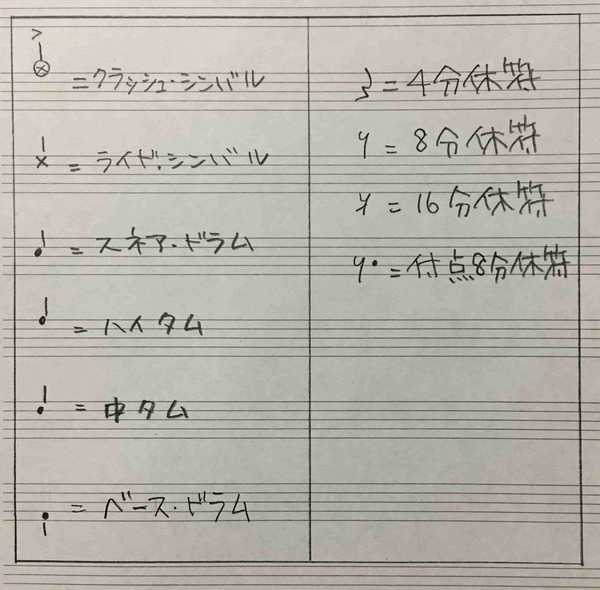 = クラッシュ・シンバル
= ライド・シンバル
= スネア・ドラム
= ハイタム
= 中タム
= ベース・ドラム
= 4分休符
= 8分休符
= 16分休符
= 付点8分休符